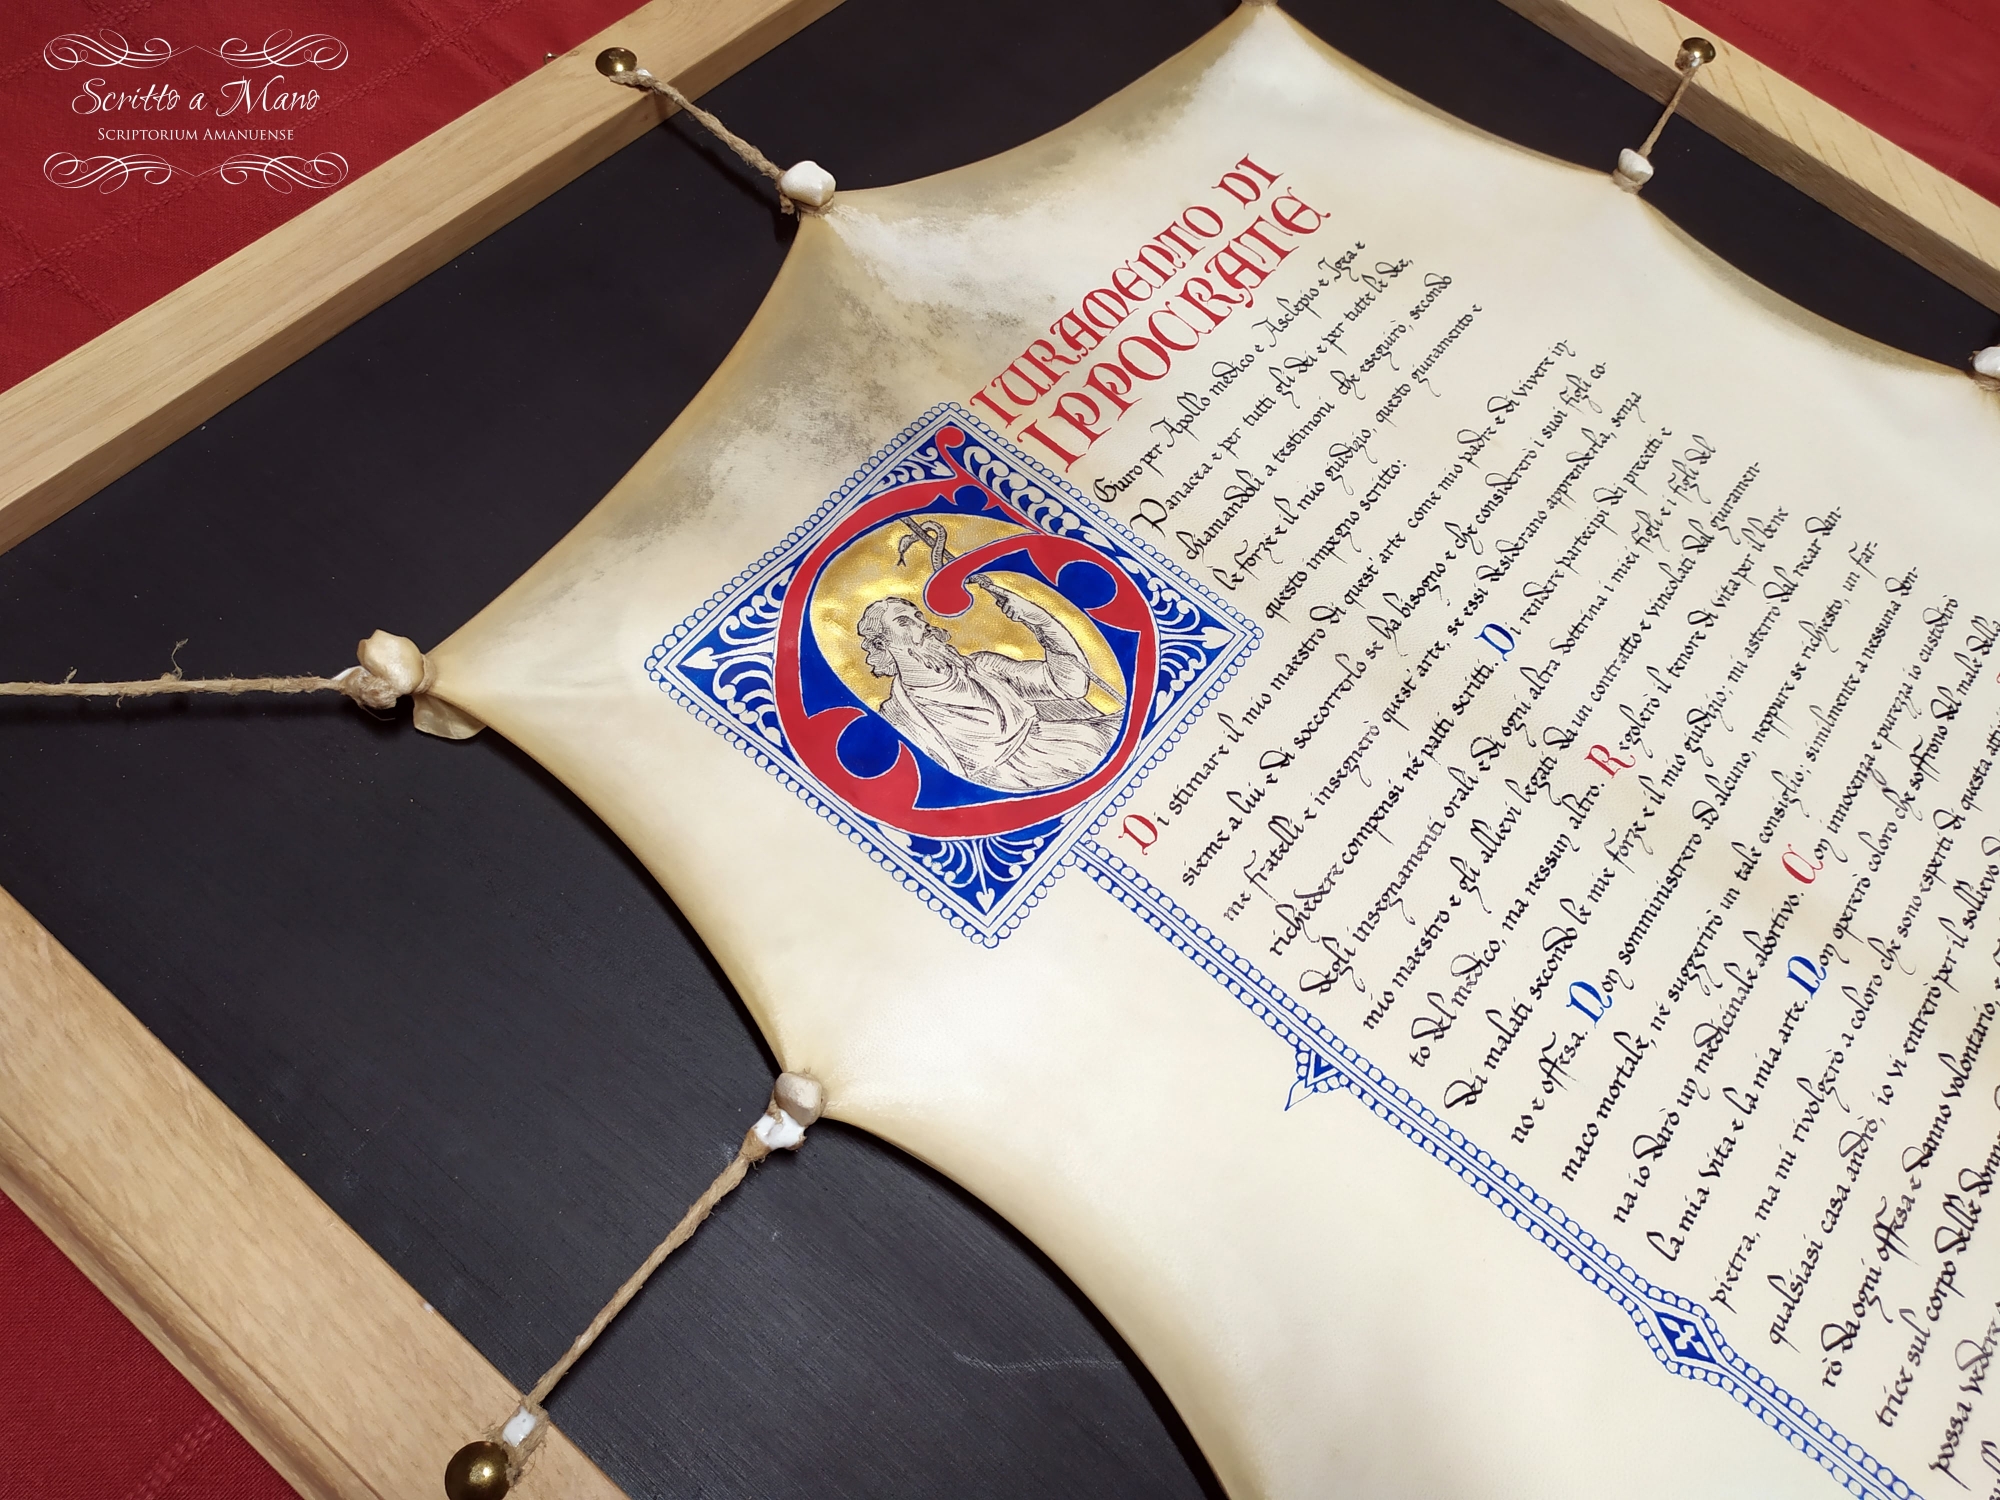 Scritto a Mano
SCRIPTORIUM AMANUENSE
IURAMENTO DI
IPPOCRATE
Giuro per Apollo medico e Asclepio e Igea e
Panacea e per tutti gli dei e per tutte le dee,
chiamandoli a testimoni che eseguirò, secondo
le forze e il mio giudizio, questo giuramento e
questo impegno scritto:
Di stimare il mio maestro di quest'arte come mio padre e di vivere in-
sieme a lui e di soccorrerlo se ha bisogno e che considererò i suoi figli co-
me fratelli e insegnerò quest'arte, se essi desiderano apprenderla, senza
richiedere compensi né patti scritti. Di rendere partecipi dei precetti e
degli insegnamenti orali e di ogni altra dottrina i miei figli e i figli del
mio maestro e gli allievi legati da un contratto e vincolati dal giuramen-
to del medico, ma nessun altro. Regolerò il tenore di vita per il bene
dei malati secondo le mie forze e il mio giudizio; mi asterrò dal recar dan-
no e offesa. Non somministrerò ad alcuno, neppure se richiesto, un far-
maco mortale, né suggerirò un tale consiglio; similmente a nessuna don-
na io darò un medicinale abortivo. Con innocenza e purezza io custodirò
la mia vita e la mia arte. Non opererò coloro che soffrono del male della
pietra, ma mi rivolgerò a coloro che sono esperti di questa
qualsiasi casa andrò, io vi entrerò per il sollievo
rò da ogni offesa e danno volontario,
trice sul corpo delle
possa vedere